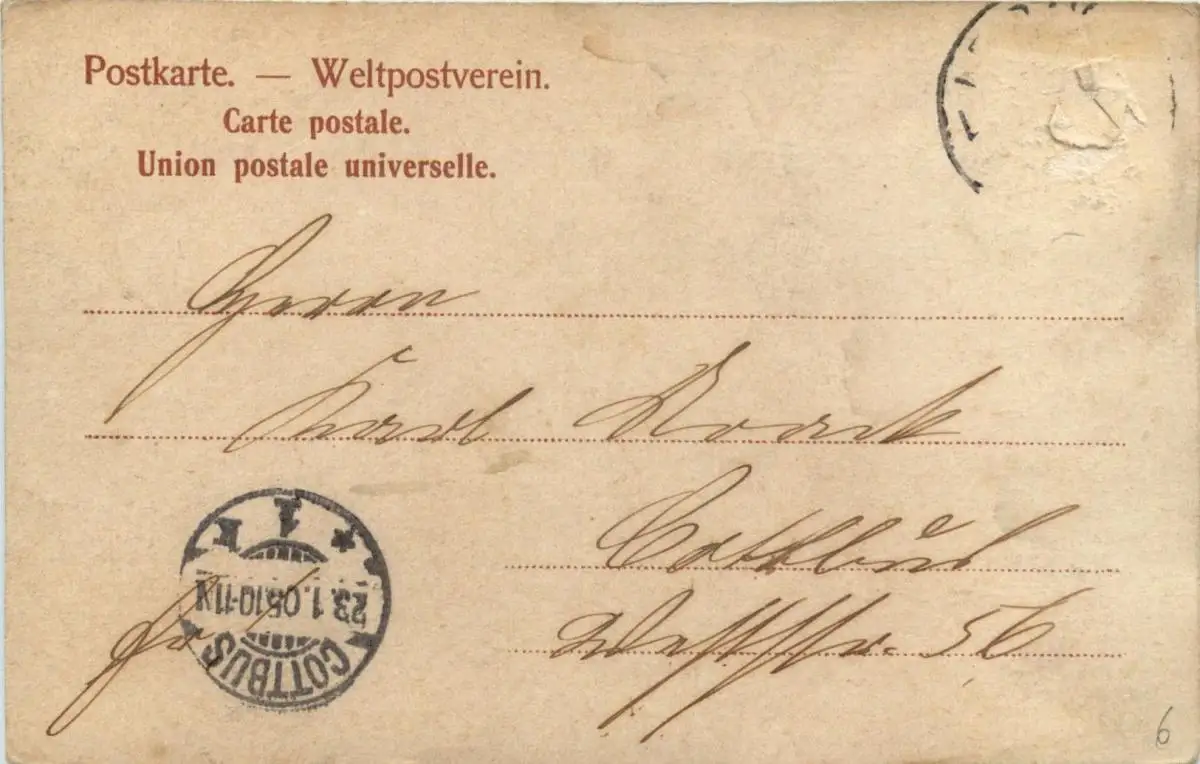 Postkarte. — Weltpostverein.
Carte postale.
Union postale universelle.
Herrn
Karl Noack
Cottbus
Weststr. 56
fr
COTTBUS
23.1.05.10-11N
* 1 k
6